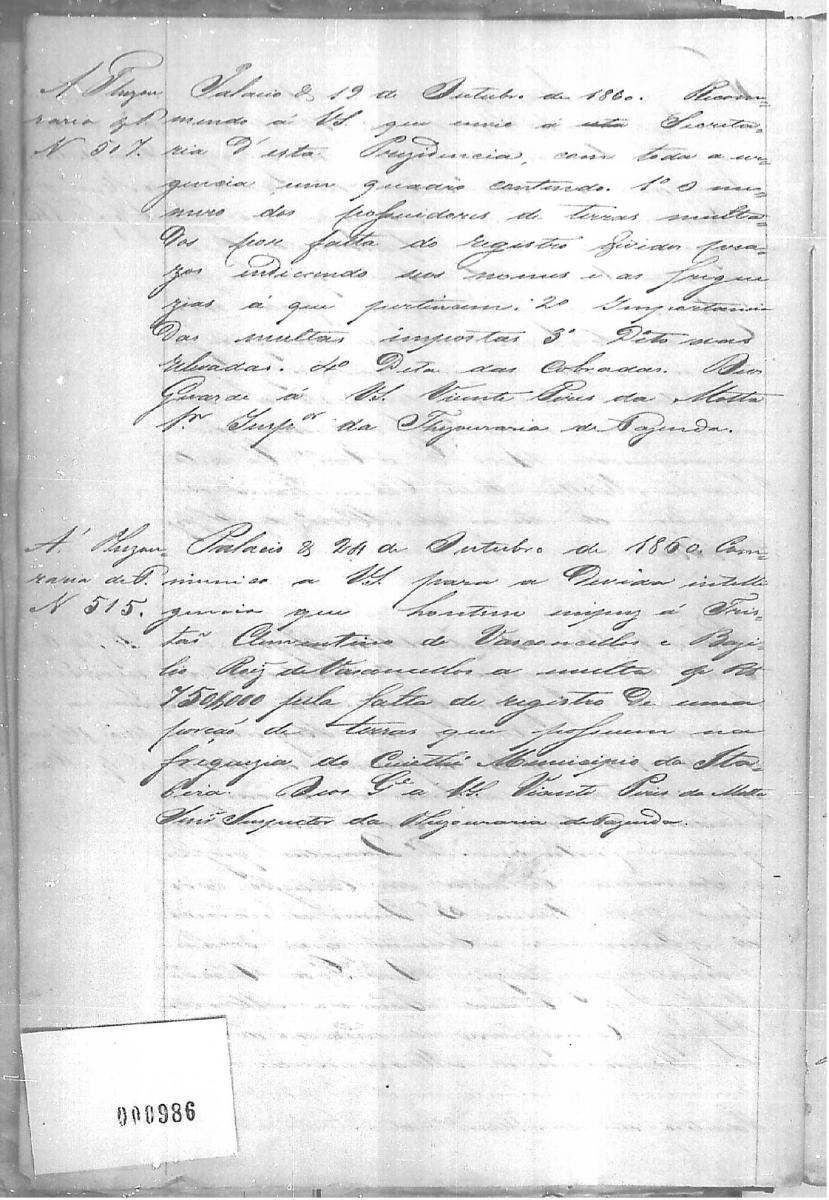 A' Thezou
raria de F.
N 507.
Palacio 19 de Outubro de 1860. Recom-
mendo á VS. que envie á esta Secreta-
ria d'esta Prezidencia, com toda a ur-
gencia um quadro contendo. 1º O nu-
mero dos possuidores de terras multa-
dos por falta do registro devidos pra-
zos indicando seos nomes e as fregue
zias á que pertencem: 2º Importancia
das multas impostas 3º Dito das
relevadas. 4º Dita das Cobradas. Deos
Guarde á VS. Vicente Pires da Motta
Sr Insp.or da Thezouraria de Fazenda.
A' Thezou
raria de F.
N 515.
Palacio 24 de Outubro de 1860. Com-
munico a VS. para a devida intelli
gencia que hontem impuz á Tris-
tão Clementino de Vasconcellos e Bazi-
lio de Vasconcellos a multa de Rs
750$000 pela falta de registro de uma
porção de terras que possuem na
freguezia do Municipio da Ita-
bira. Deos G.e a VS. Vicente Pires da Motta
Snr Inspector da Thezouraria de Fazenda.
000986